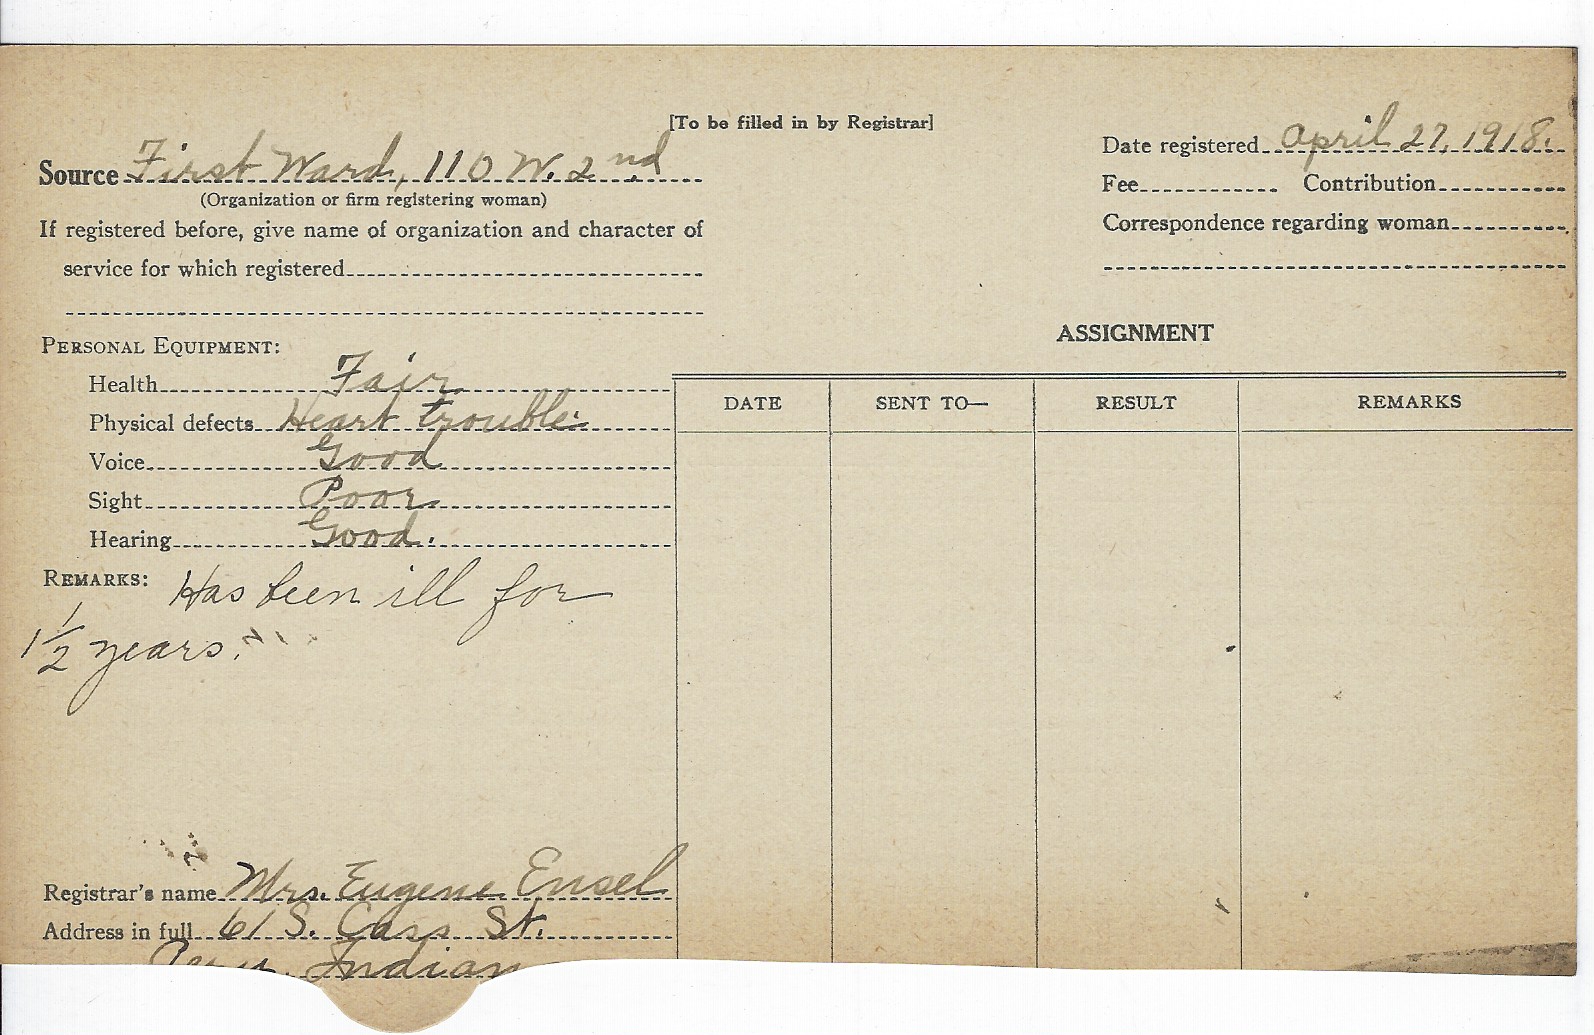 [To be filled in by Registrar]
Source First Ward, 110 W. 2nd
(Organization or firm registering woman)
If registered before, give name of organization and character of
service for which registered
Date registered April 27, 1918.
Fee Contribution
Correspondence regarding woman
PERSONAL EQUIPMENT:
Health Fair
Physical defects Heart trouble.
Voice Good
Sight Poor
Hearing Good.
REMARKS: Has been ill for
1 1/2 years.
Registrar's name Mrs. Eugene Ensel
Address in full 61 S. Cass St.
Peru, Indian
ASSIGNMENT
DATE SENT TO— RESULT REMARKS